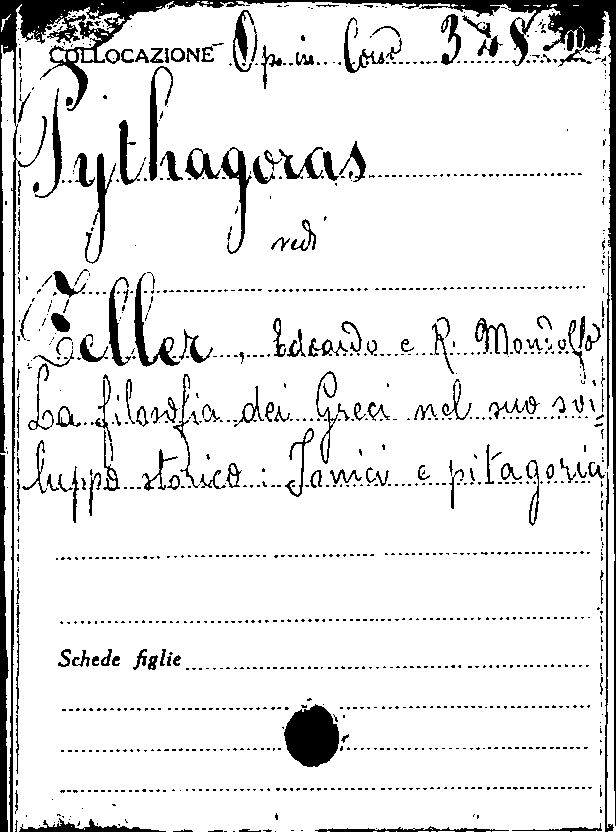 COLLOCAZIONE Op. in Cons 328
Pythagoras
vedi
Zeller, Edoardo e R. Mondolfo
La filosofia dei Greci nel suo svi-
luppo storico: Ionici e pitagorici
Schede figlie